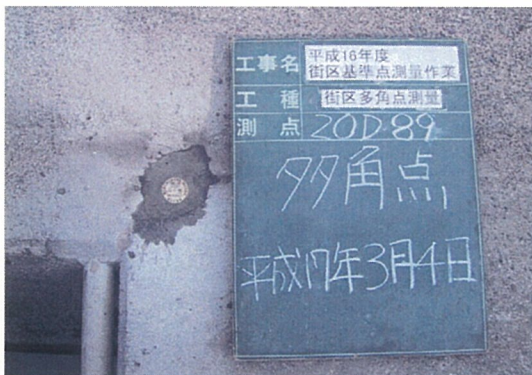 工事名 平成16年度
街区基準点測量作業
工種 街区多角点測量
測点 20D-89
多角点
平成17年3月4日